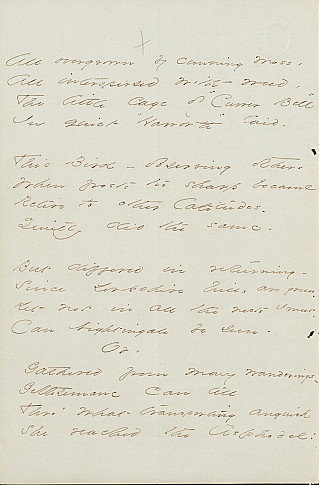 All overgrown by cunning moss,
All interspersed with weed,
The little cage of "Currer Bell"
In quiet "Haworth" laid.
This Bird - observing others
When frosts too sharp became
Retire to other latitudes -
Quietly did the same -
But differed in returning -
Since Yorkshire hills are green -
Yet not in all the nests I meet -
Can Nightingale be seen -
Or -
Gathered from many wanderings -
Gethsemane can tell
Thro' what transporting anguish
She reached the Asphodel!